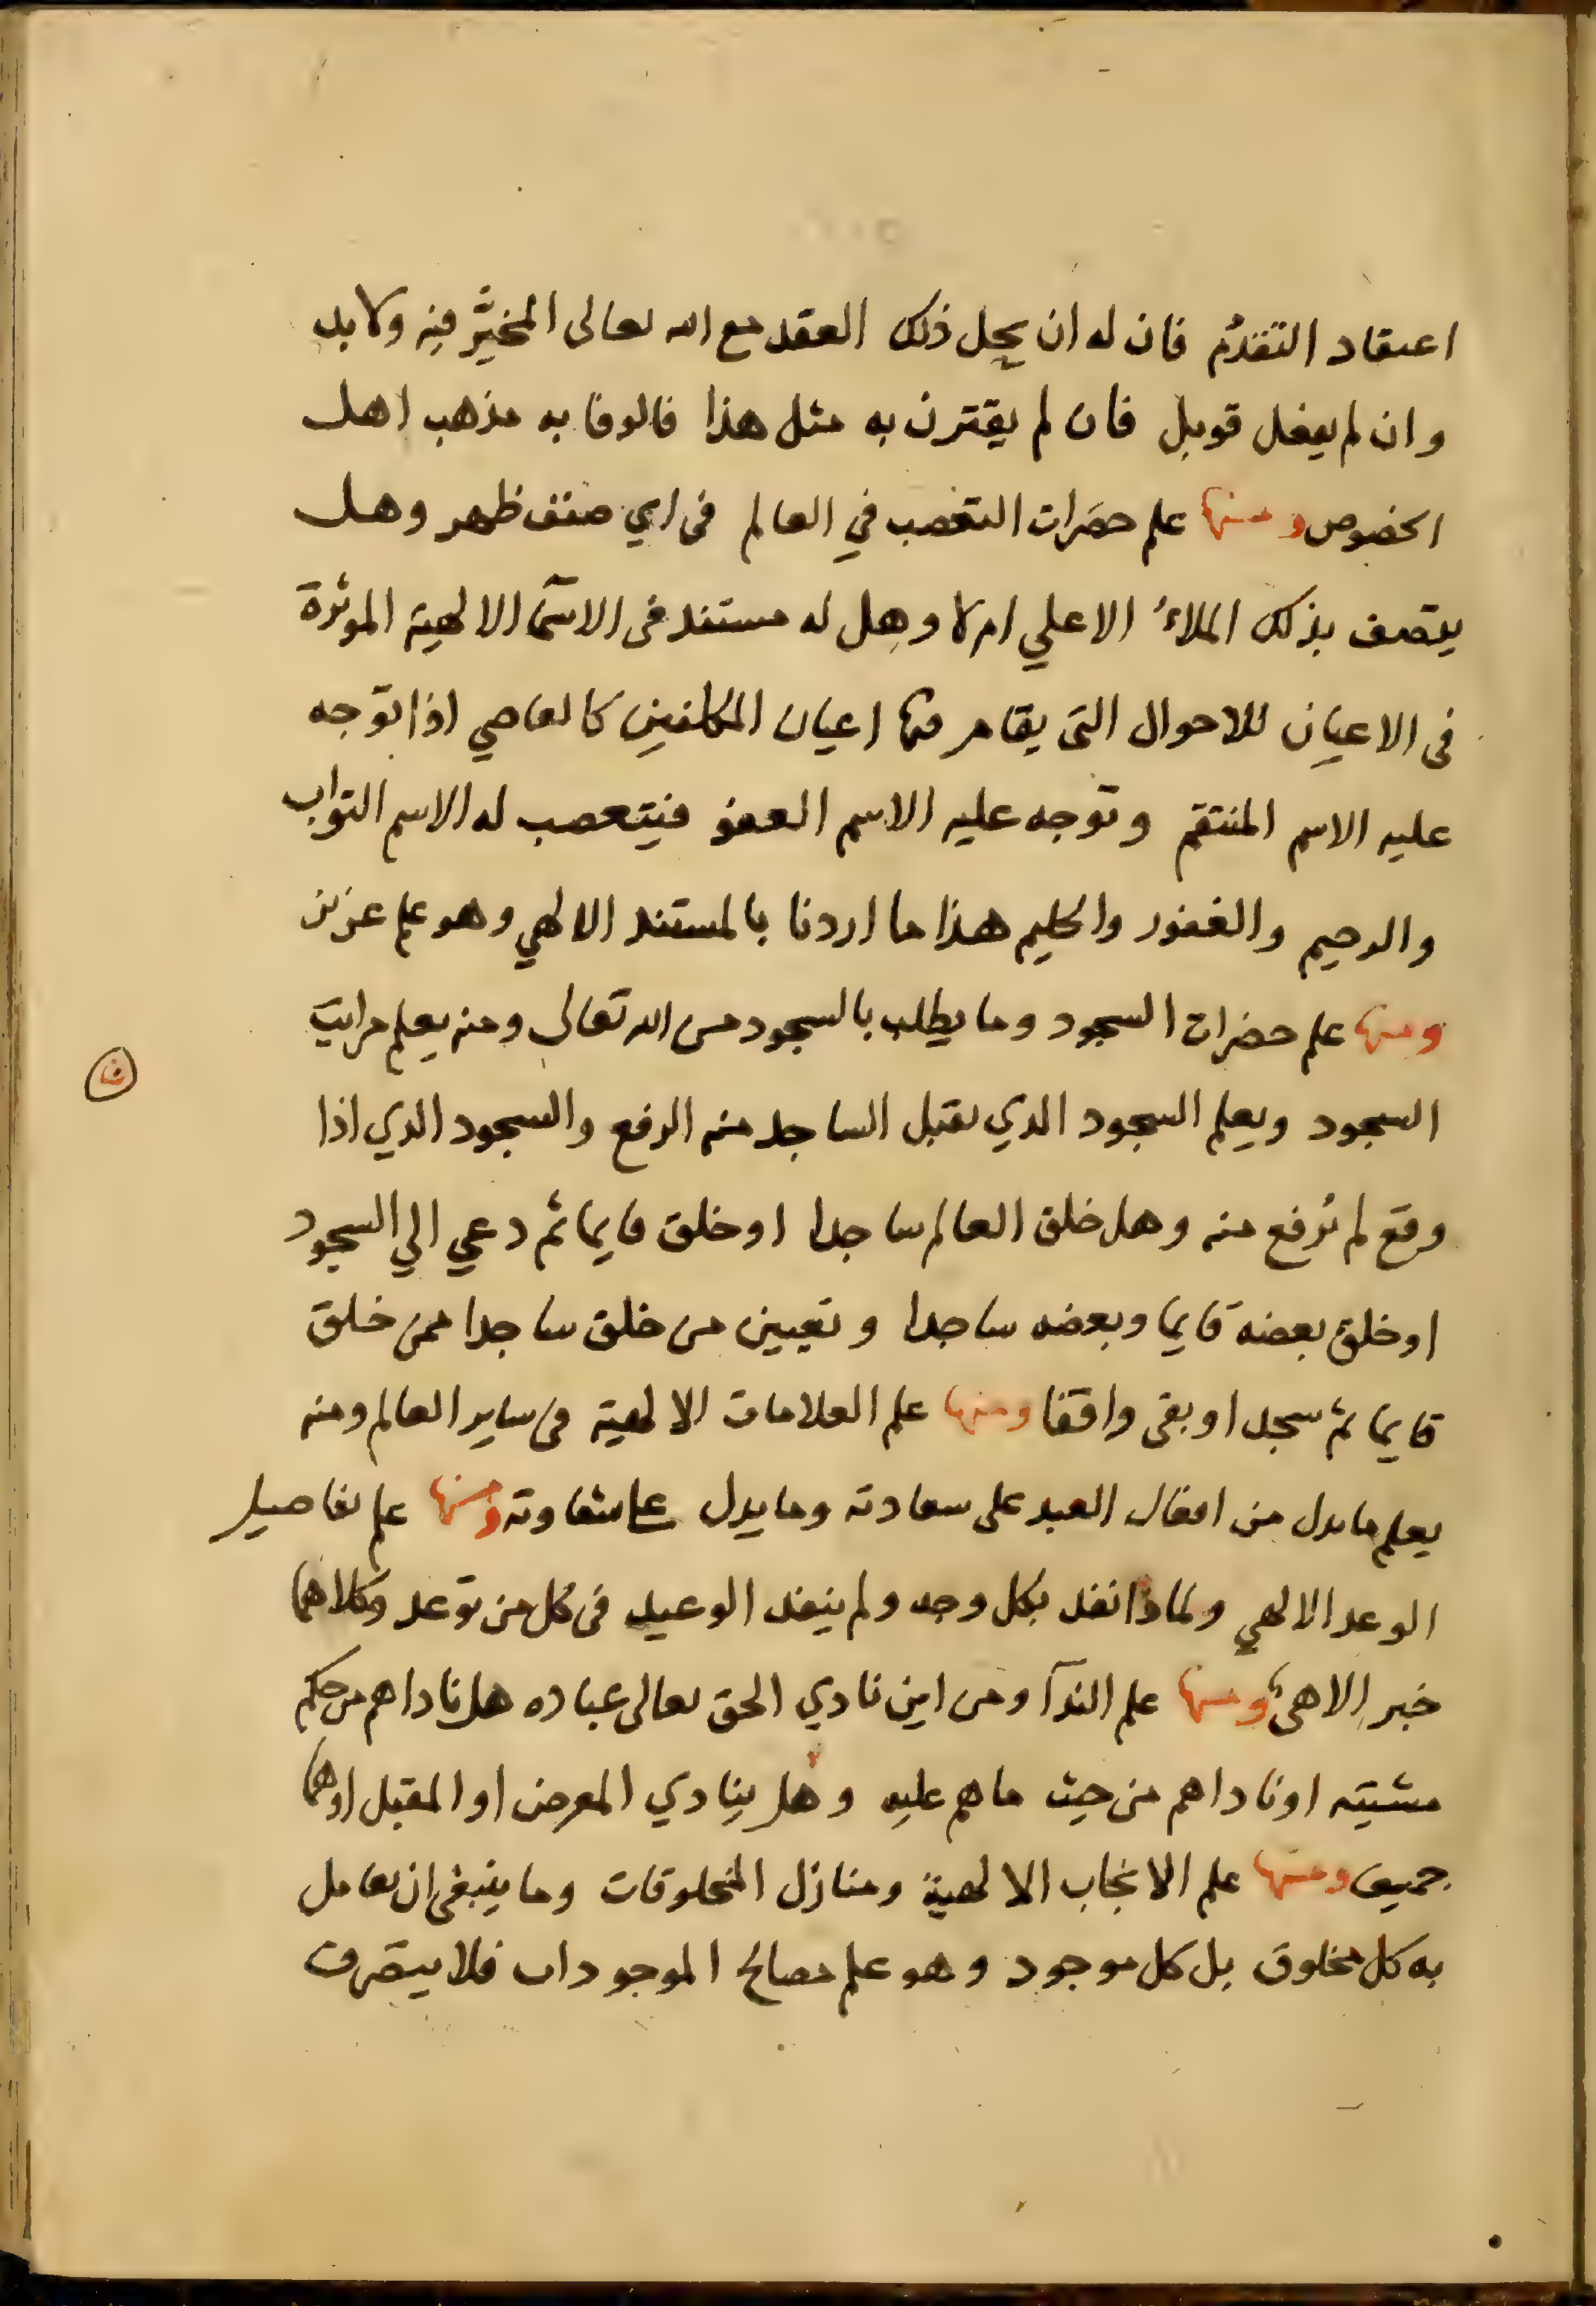 اعتقاد التقدُّم فان له ان يحل ذلك العقد مع الله تعالى المخيَّر فيه ولا بد
وان لم يفعل قوبل فان لم يقترن به مثل هذا فالوفا به مذهب اهل
الخصوص ومنها علم حضرات التعصب في العالم فى اي صنف ظهر وهل
يتصف بذلك الملاء الاعلي ام لا وهل له مستند فى الاسمآ الالهية الموثرة
فى الاعيان للاحوال التى يقام فيها اعيان المكلفين كالعاصي اذا توجه
عليه الاسم المنتقم وتوجه عليه الاسم العفو فيتعصب له الاسم التواب
والرحيم والغفور والحليم هذا ما اردنا بالمستند الالهي وهو علم عزيز
ومنها علم حضرات السجود وما يطلب بالسجود من الله تعالى ومنه يعلم مراتب
السجود ويعلم السجود الذي يقبل الساجد منه الرفع والسجود الذي اذا
وقع لم يُرفع منه وهل خلق العالم ساجدا او خلق قايما ثم دعي الي السجود
او خلق بعضه قايما وبعضه ساجدا وتعيين من خلق ساجدا ممن خلق
قايما ثم سجد او بقى واقفا ومنها علم العلامات الالهية فى ساير العالم ومنه
يعلم ما يدل من افعال العبد على سعادته وما يدل على شقاوته ومنها علم تفاصيل
الوعد الالهي ولماذا نفذ بكل وجه ولم ينفذ الوعيد فى كل من توعد وكلاهما
خبر الاهى ومنها علم الندآ ومن اين نادي الحق تعالى عباده هل ناداهم من حكم
مشيته او ناداهم من حيث ما هم عليه وهل ينادي المعرض او المقبل او هما
جميعا ومنها علم الانجاب الالهية ومنازل المخلوقات وما ينبغى ان يعامل
به كل مخلوق بل كل موجود وهو علم مصالح الموجودات فلا يتصرف